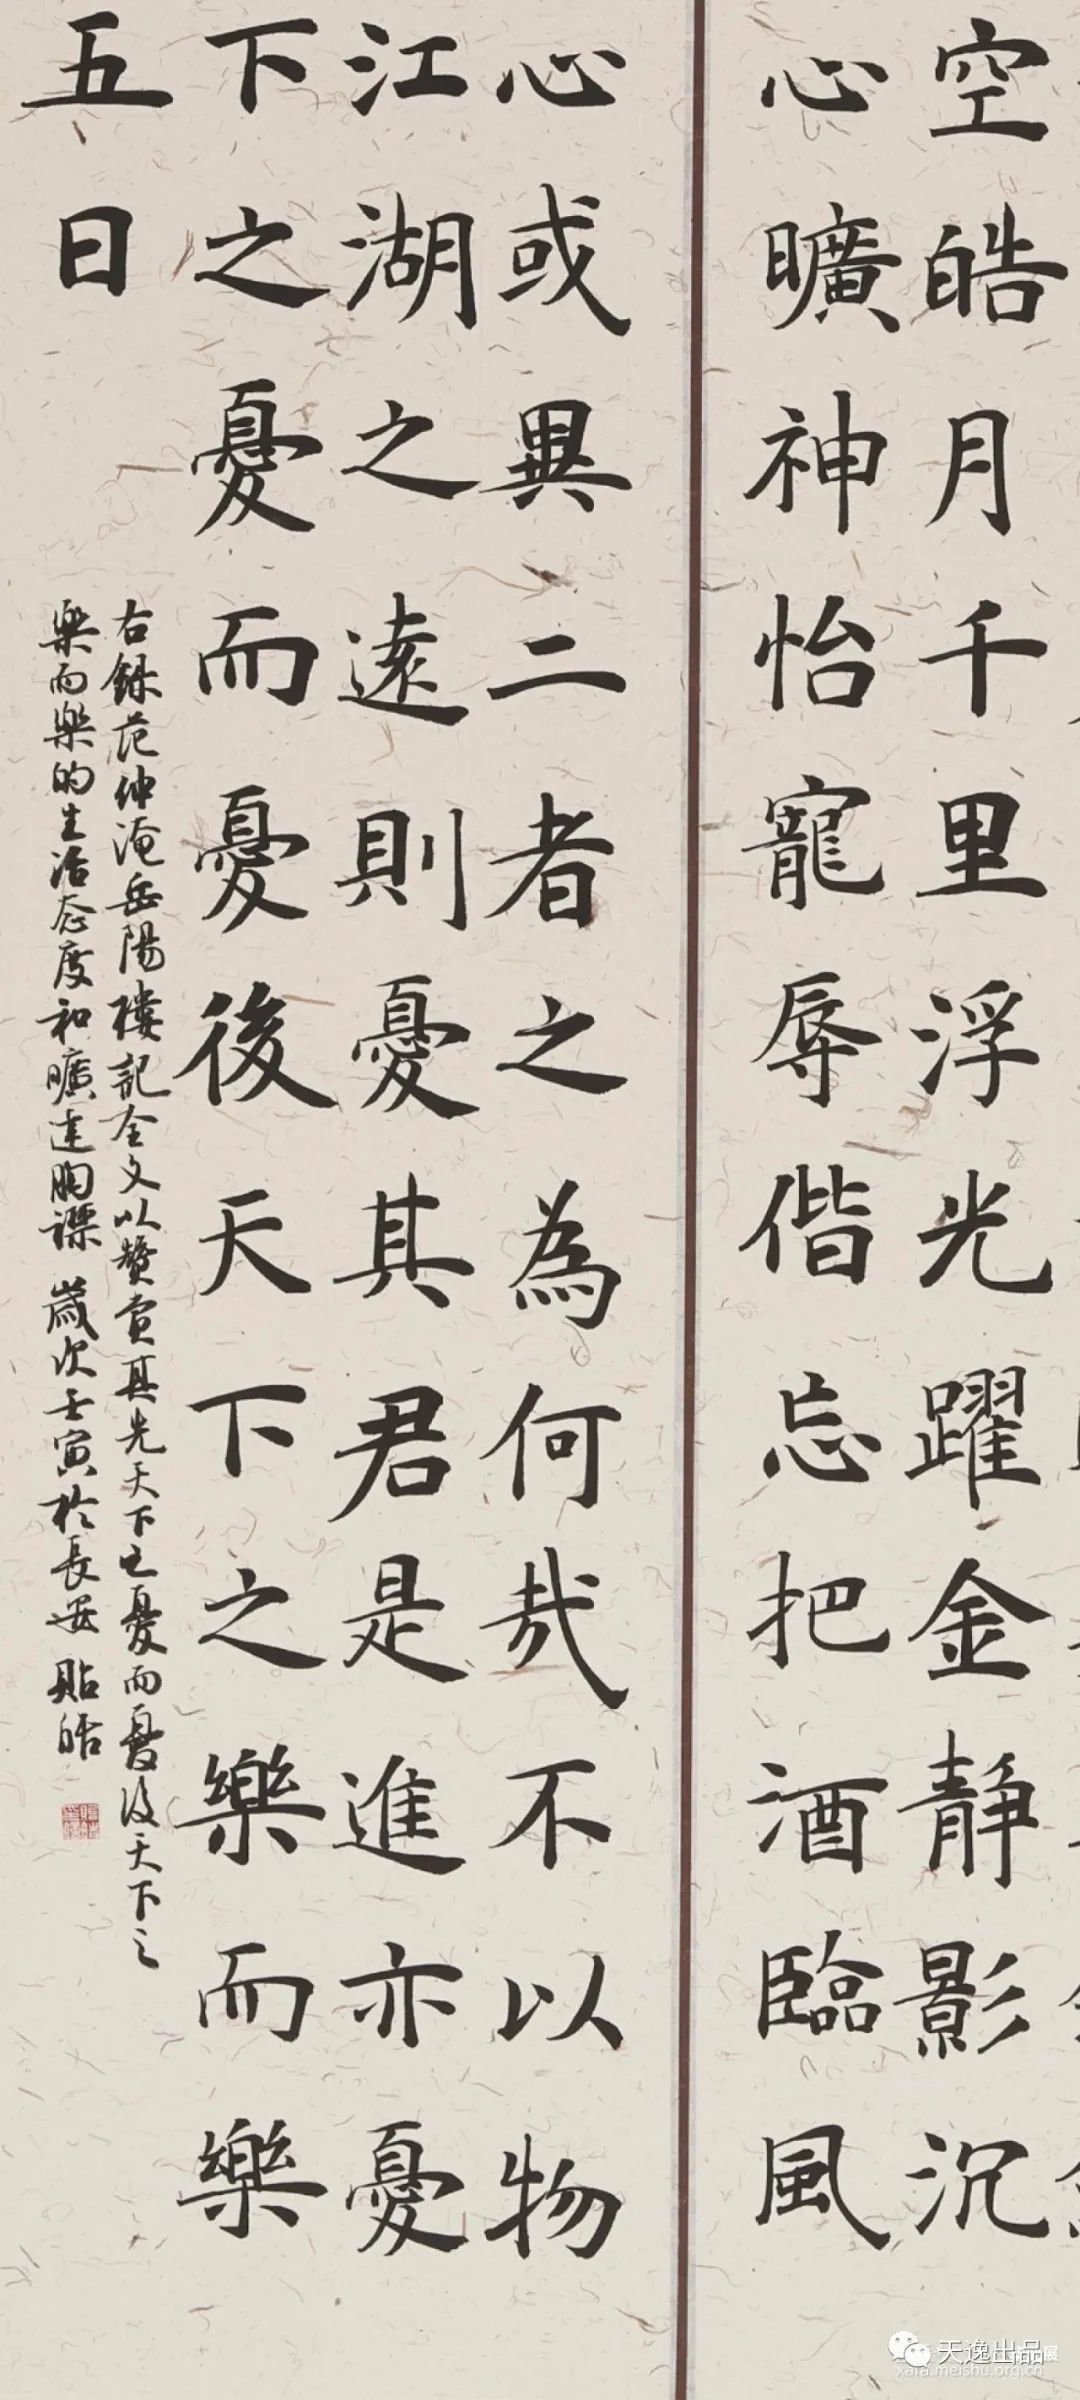 空皓月千里浮光躍金静影沉
心曠神怡寵辱偕忘把酒臨風
心或異二者之為何哉不以物
江湖之遠則憂其君是進亦憂
下之憂而憂後天下之樂而樂
五日
右録范仲淹岳陽樓記全文以贊賞其先天下之憂而憂後天下之
樂而樂的生活态度和曠達胸襟 歲次壬寅於長安 貼皓
天逸出品
展
xafa.meishu.org.cn